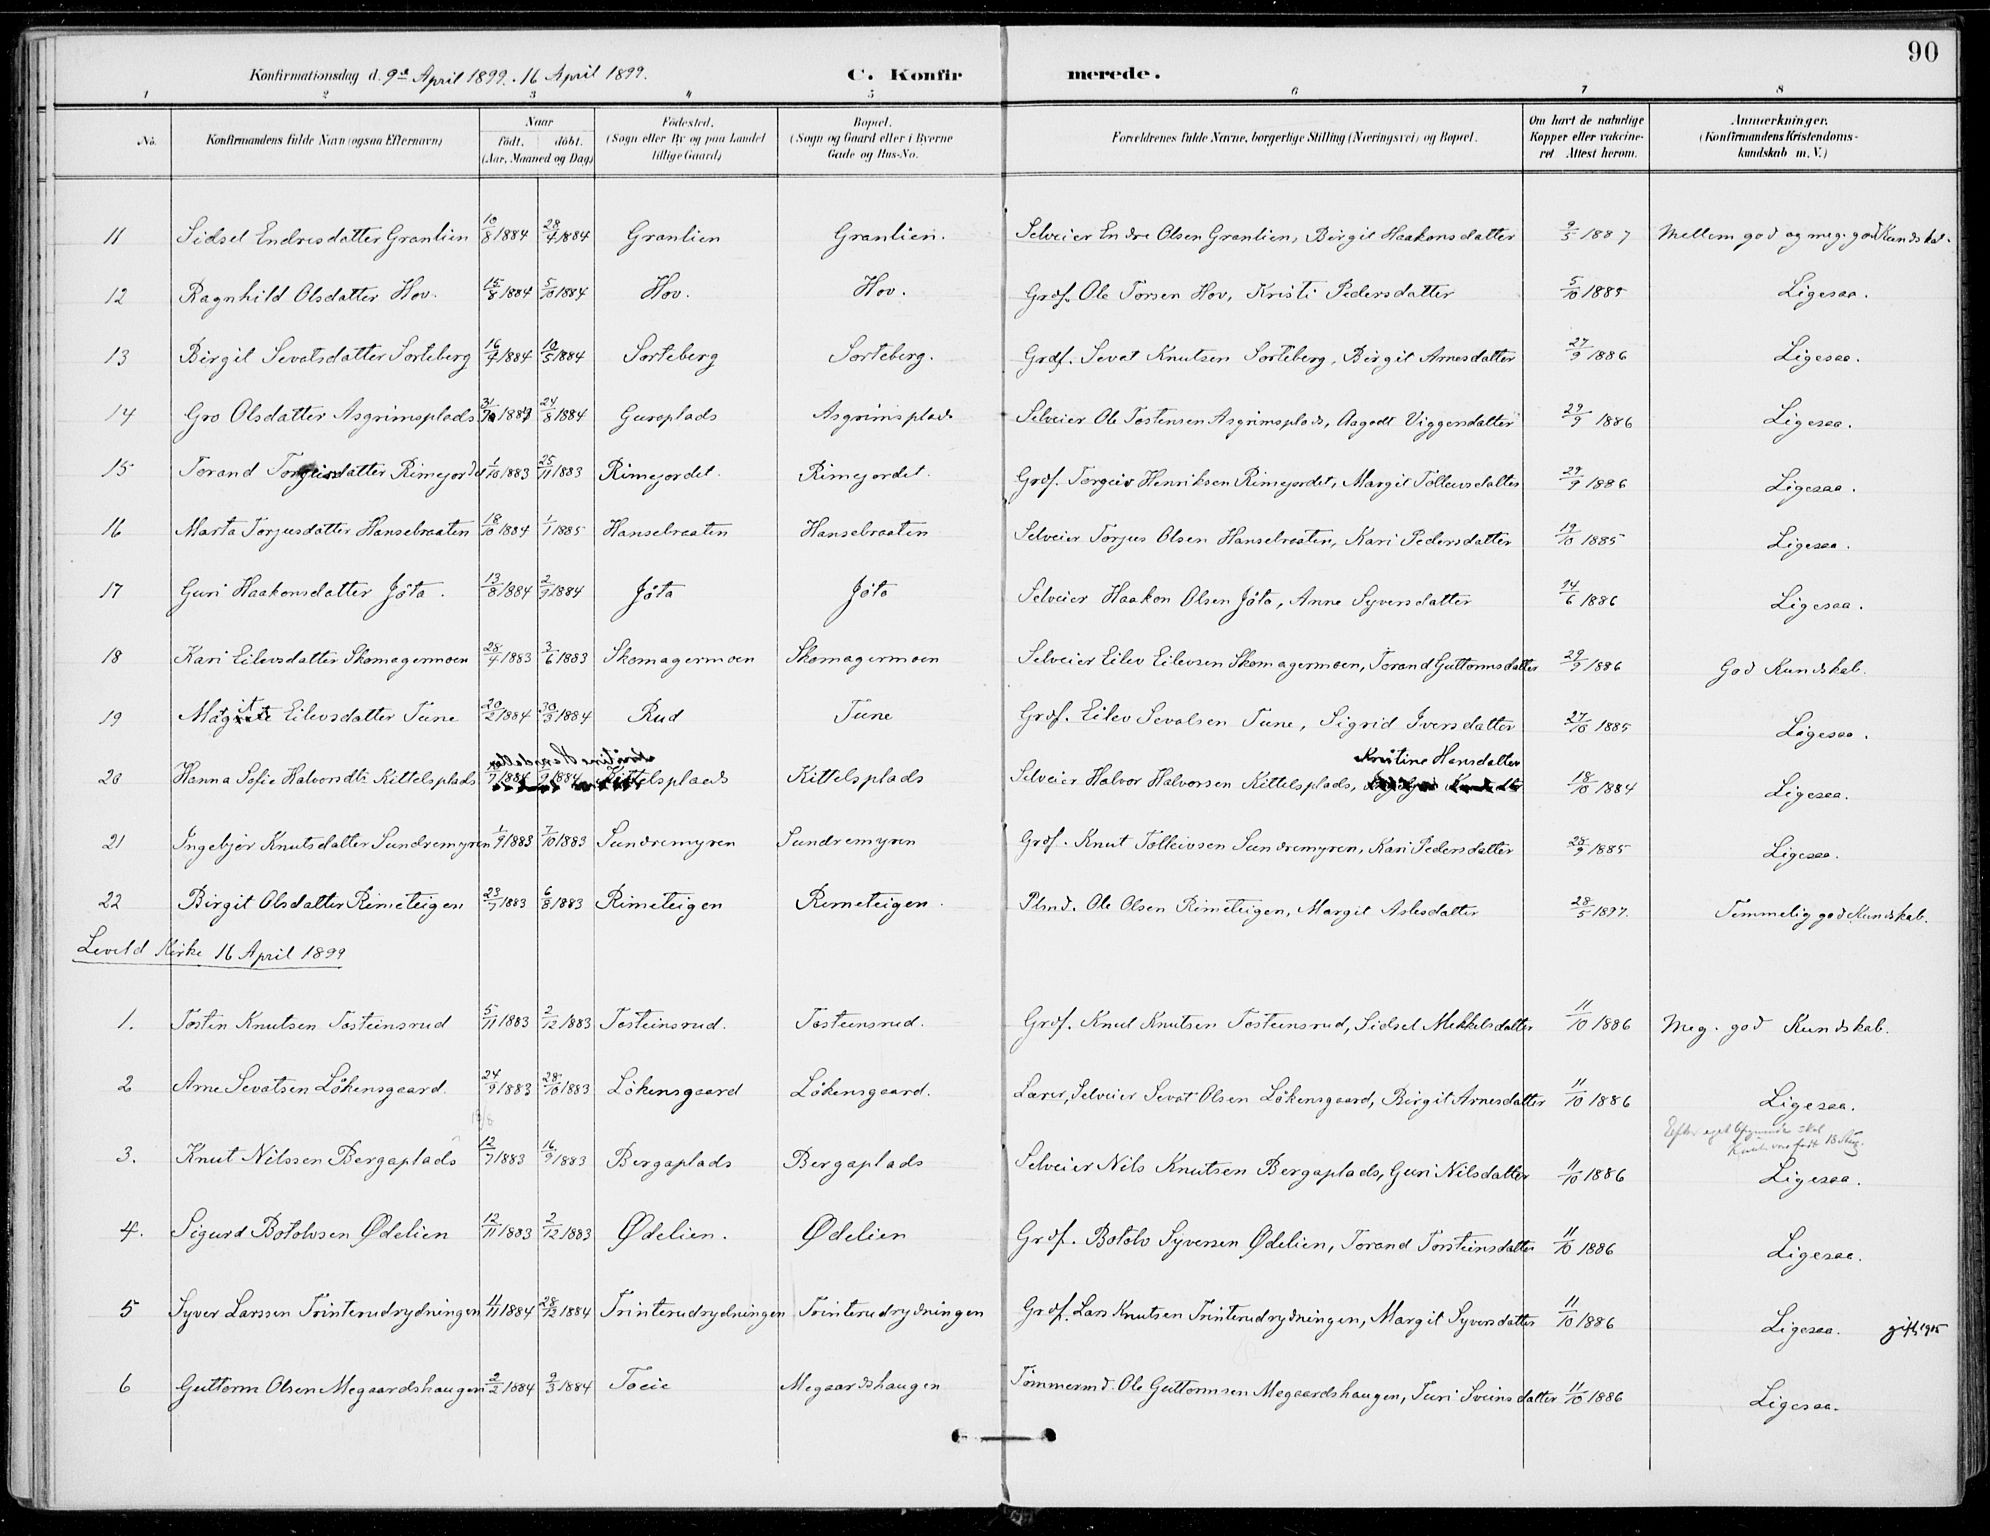 90
Konfirmationsdag d. 9de April 1899. 16 April 1899. C. Konfir merede.
1 2 3 4 5 6 7 8
No. Konfirmandens fulde Navn (ogsaa Efternavn) Naar født. døbt. (Aar, Maaned og Dag) Fødested. (Sogn eller By og paa Landet tillige Gaard) Bopæl. (Sogn og Gaard eller i Byerne Gade og Hus-No. Forældrenes fulde Navne, borgerlige Stilling (Næringsvei) og Bopæl. Om havt de naturlige Kopper eller vaccineret Attest herom. Anmærkninger. (Konfirmandens Kristendomskundskab m. V.)
11 Sidsel Endresdatter Granlien 10/8 1884 28/4 1884 Granlien Granlien. Selveier Endre Olsen Granlien, Birgit Haakonsdatter 9/5 1887 Mellem god og meg. god Kundskab.
12 Ragnhild Olsdatter Hov. 15/8 1884 5/10 1884 Hov. Hov. Grdf. Ole Torsen Hov, Kristi Pedersdatter 5/10 1885 Ligesaa.
13 Birgit Sevatsdatter Sorteberg 16/4 1884 10/5 1884 Sorteberg Sorteberg. Grdf. Sevat Knutsen Sorteberg, Birgit Arnesdatter 27/9 1886 Ligesaa.
14 Gro Olsdatter Asgrimsplads 24/8 1884 Guroplads Asgrimsplads Selveier Ole Tostensen Asgrimsplads, Aagodt Viggersdatter 29/9 1886 Ligesaa.
15 Torand Torgeirsdatter Rimejordet 1/10 1883 25/11 1883 Rimejordet. Rimejordet. Grdf. Torgeir Henriksen Rimejordet, Margit Tolleivsdatter 29/9 1886 Ligesaa.
16 Marta Torjusdatter Hansebraaten 18/10 1884 1/1 1885 Hansebraaten Hansebraaten Selveier Torjus Olsen Hansebraaten, Kari Pedersdatter 19/10 1885 Ligesaa.
17 Guri Haakonsdatter Jøta. 13/8 1884 2/9 1884 Jøta Jøta Selveier Haakon Olsen Jøta, Anne Syversdatter 14/6 1886 Ligesaa.
18 Kari Eilevsdatter Skomagermoen 28/4 1883 3/6 1883 Skomagermoen Skomagermoen Selveier Eilev Eilevsen Skomagermoen, Torand Guttormsdatter 29/9 1886 God Kundskab.
19 Eilevsdatter Tune 20/2 1884 30/3 1884 Rud Tune Grdf. Eilev Sevatsen Tune, Sigrid Iversdatter 27/10 1885 Ligesaa.
Kristine Hansdatter
20 Hanna Sofie Halvorsdtr Kittelsplads 1884 1884 Kittelsplads Kittelsplads Selveier Halvor Halvorsen Kittelsplads, 18/10 1884 Ligesaa.
21 Ingebjør Knutsdatter Sundremyren 1/9 1883 7/10 1883 Sundremyren Sundremyren Grdf. Knut Tolleivsen Sundremyren, Kari Pedersdatter 28/9 1885 Ligesaa.
22 Birgit Olsdatter Rimeteigen 23/7 1883 6/8 1883 Rimeteigen Rimeteigen. Plmd. Ole Olsen Rimeteigen, Margit Aslesdatter 28/5 1897. Temmelig god Kundskab.
Leveld Kirke 16 April 1899
1. Tostin Knutsen Tosteinsrud 5/11 1883 2/12 1883 Tosteinsrud. Tosteinsrud. Grdf. Knut Knutsen Tosteinsrud, Sidsel Mekkelsdatter 11/10 1886 Meg. god Kundskab.
2 Arne Sevatsen Løkensgaard. 24/9 1883 28/10 1883 Løkensgaard Løkensgaard. Lærer, Selveier Sevat Olsen Løkensgaard, Birgit Arnesdatter 11/10 1886 Ligesaa.
Efter eget Opgivende skal
Knut være født 13 Aug.
3. Knut Nilssen Bergaplads 12/7 1883 16/9 1883 Bergaplads Bergaplads Selveier Nils Knutsen Bergaplads, Guri Nilsdatter 11/10 1886 Ligesaa.
4. Sigurd Botolvsen Ødelien 12/11 1883 2/12 1883 Ødelien. Ødelien Grdf. Botolv Syversen Ødelien, Torand Torsteinsdatter 11/10 1886 Ligesaa.
5 Syver Larssen Trinterudrydningen 11/11 1884 28/12 1884 Trinterudrydningen Trinterudrydningen Grdf. Lars Knutsen Trinterudrydningen, Margit Syversdatter 11/10 1886 Ligesaa. gift 1915
6 Guttorm Olsen Megaardshaugen 2/2 1884 9/3 1884 Toeie Megaardshaugen Tømmermd. Ole Guttormsen Megaardshaugen, Turi Sveinsdatter 11/10 1886 Ligesaa.